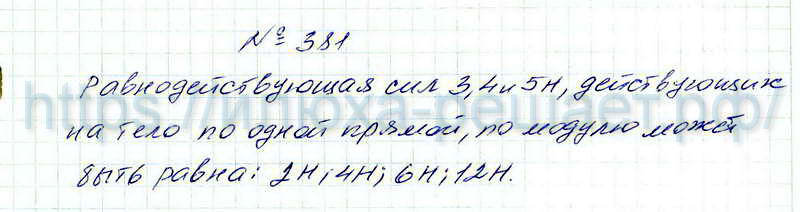 № 381
Равнодействующая сил 3,4 и 5Н, действующих
на тело по одной прямой, по модулю может
быть равна: 2Н; 4Н; 6Н; 12Н.
https://илюха-решает.рф/